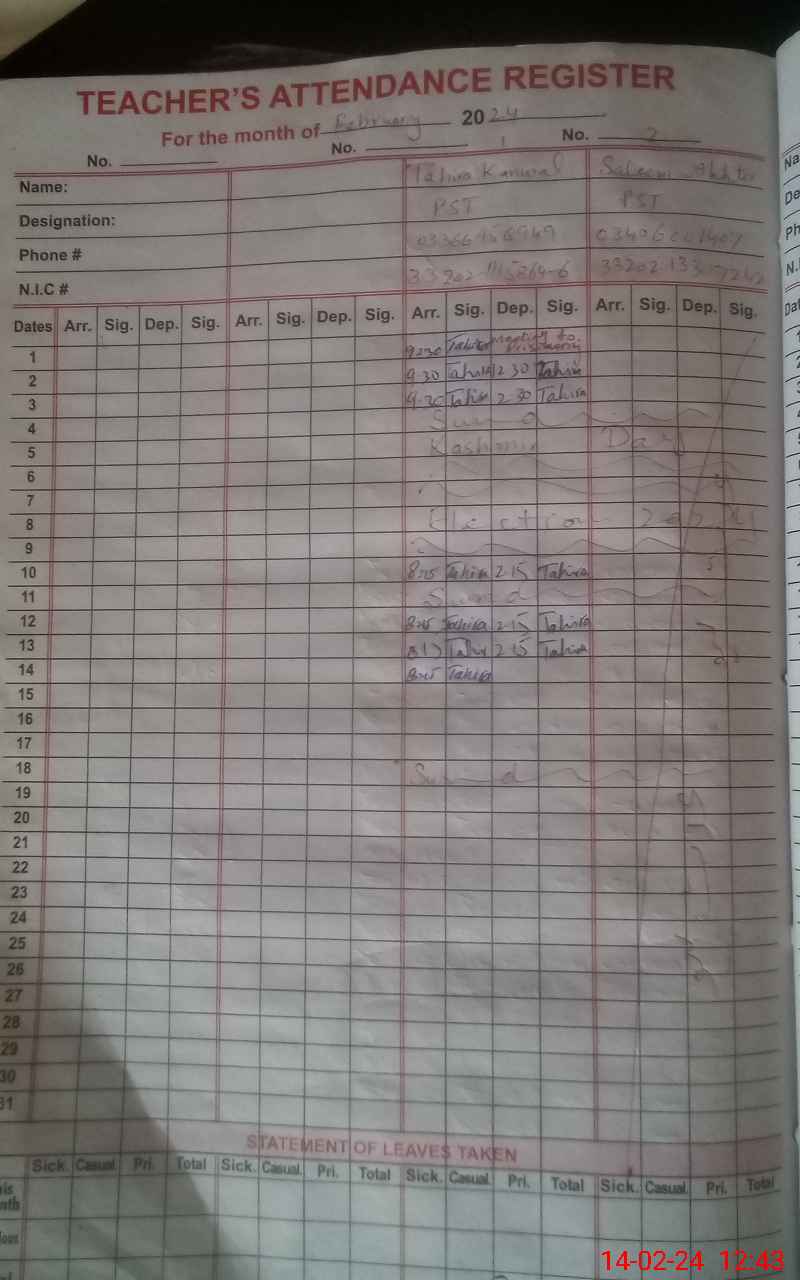 TEACHER'S ATTENDANCE REGISTER
For the month of February 2024
No. No. 1 No. 2
Name: Tahira Kanwal Saleem Akhter
Designation: PST PST
Phone #
N.I.C #
Dates Arr. Sig. Dep. Sig. Arr. Sig. Dep. Sig. Arr. Sig. Dep. Sig. Arr. Sig. Dep. Sig.
1 9:30 Tahira meeting to
2 9-30 Tahira 2 30 Tahira
3 9-30 Tahira 2-30 Tahira
4 Sund
5 Kashmir Day
6
7
8 Election 2024
9
10 8:15 Tahira 2-15 Tahira
11 Sund
12 8:15 Tahira 2-15 Tahira
13 Tahir 2 15 Tahira
14 8:15 Tahira
15
16
17
18 Sund
19
20
21
22
23
24
25
26
27
28
29
30
31
STATEMENT OF LEAVES TAKEN
Sick. Casual. Pri. Total Sick. Casual. Pri. Total Sick. Casual. Pri. Total Sick. Casual. Pri. Total
14-02-24 12:43